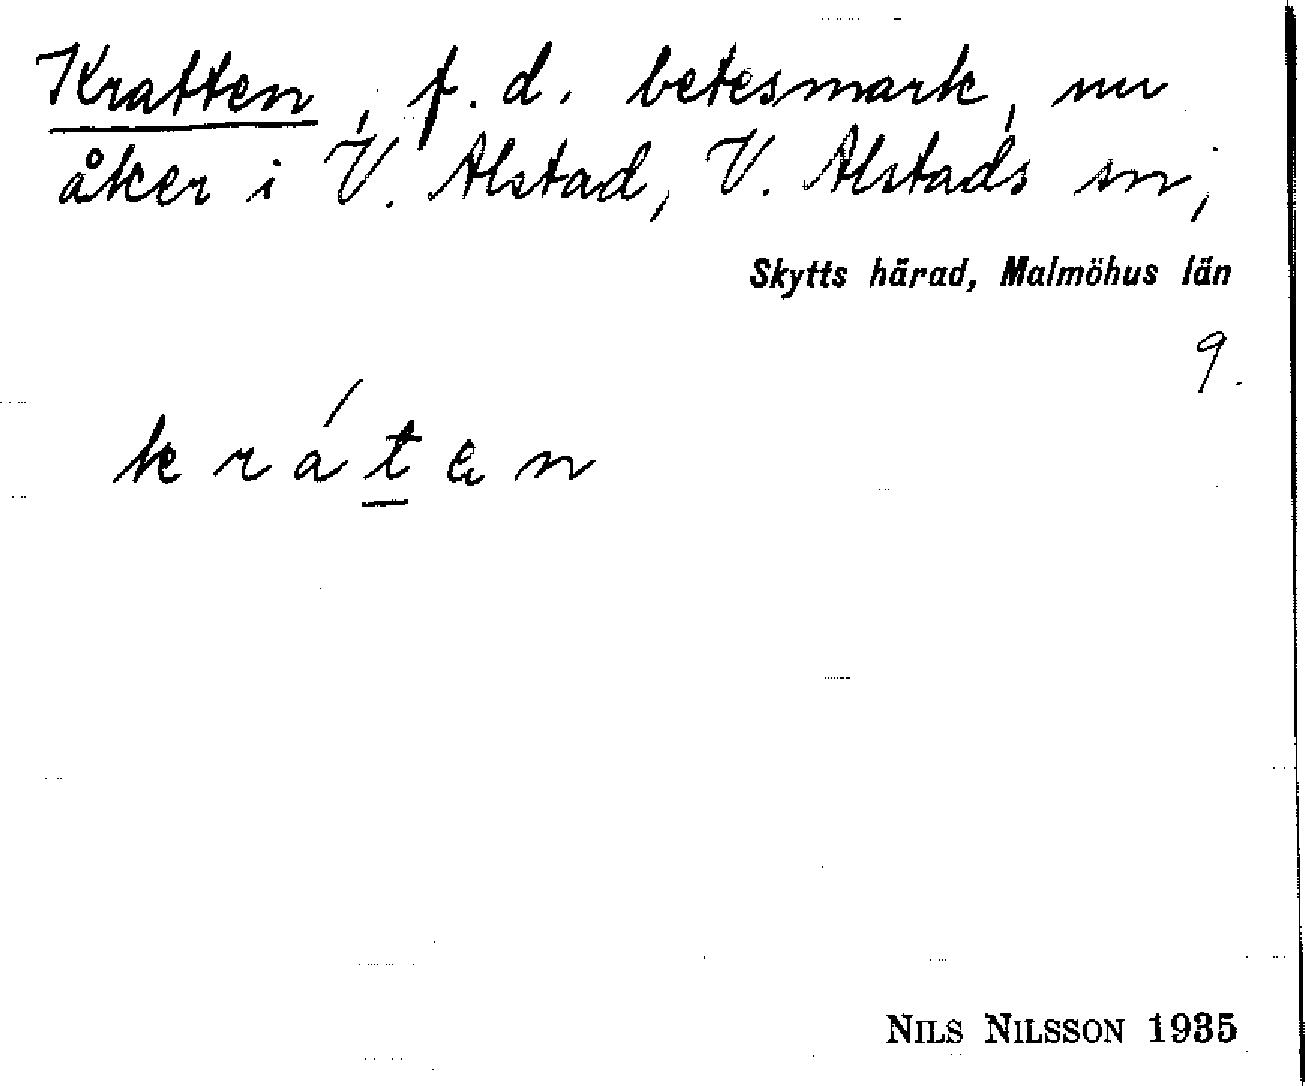 Kratten, f.d. betesmark, nu
åker i V. Alstad, V. Alstads sn,
Skytts härad, Malmöhus län
9.
kráten
NILS NILSSON 1935